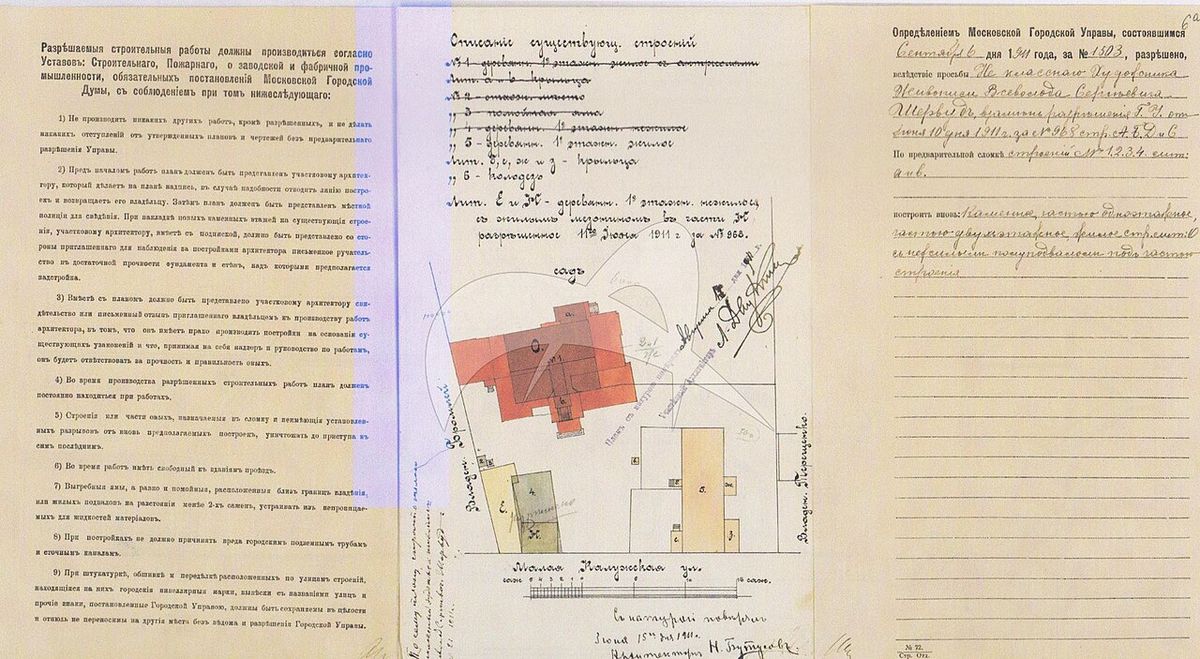 Разрѣшаемыя строительныя работы должны производиться согласно
Уставовъ: Строительнаго, Пожарнаго, о заводской и фабричной про-
мышленности, обязательныхъ постановленій Московской Городской
Думы, съ соблюденіемъ при томъ нижеслѣдующаго:
1) Не производить никакихъ другихъ работъ, кромѣ разрѣшенныхъ, и не дѣлать
никакихъ отступленій отъ утвержденныхъ плановъ и чертежей безъ предварительнаго
разрѣшенія Управы.
2) Предъ началомъ работъ планъ долженъ быть представленъ участковому архитек-
тору, который дѣлаетъ на планѣ надпись, въ случаѣ надобности отводитъ линію построе-
къ и возвращаетъ его владѣльцу. Затѣмъ планъ долженъ быть представленъ мѣстной
полиціи для свѣдѣнія. При закладкѣ новыхъ каменныхъ этажей на существующія строе-
нія, участковому архитектору, вмѣстѣ съ подпиской, должно быть представлено со сто-
роны приглашеннаго для наблюденія за постройками архитектора письменное ручатель-
ство въ достаточной прочности фундамента и стѣнъ, надъ которыми предполагается
надстройка.
3) Вмѣстѣ съ планомъ должно быть представлено участковому архитектору сви-
дѣтельство или письменный отзывъ приглашеннаго владѣльцемъ къ производству работъ
архитектора, въ томъ, что онъ имѣетъ право производить постройки на основаніи су-
ществующихъ узаконеній и что, принимая на себя надзоръ и руководство по работамъ,
онъ будетъ отвѣтствовать за прочность и правильность оныхъ.
4) Во время производства разрѣшенныхъ строительныхъ работъ планъ долженъ
постоянно находиться при работахъ.
5) Строенія или части оныхъ, назначенныя въ сломку и неимѣющія установлен-
ныхъ разрывовъ отъ вновь предполагаемыхъ построекъ, уничтожать до приступа къ
симъ послѣднимъ.
6) Во время работъ имѣть свободный къ зданіямъ проѣздъ.
7) Выгребныя ямы, а равно и помойныя, расположенныя близъ границъ владѣнія,
или жилыхъ подваловъ на разстояніи менѣе 2-хъ саженъ, устраивать изъ непроница-
емыхъ для жидкостей матеріаловъ.
8) При постройкахъ не должно причинять вреда городскимъ подземнымъ трубамъ
и сточнымъ каналамъ.
9) При штукатуркѣ, обшивкѣ и передѣлкѣ расположенныхъ по улицамъ строеній,
находящіяся на нихъ городскія нивелирныя марки, вывѣски съ названіями улицъ и
прочіе знаки, постановленные Городской Управою, должны быть сохраняемы въ цѣлости
и отнюдь не переносимы на другія мѣста безъ вѣдома и разрѣшенія Городской Управы.
Описаніе существующ. строеній
№ 1 деревян. 1º этажн. жилое съ антресолями
Лит. а и в крыльца
№ 2 - отхож. мѣсто
„ 3 - помойная яма
„ 4 - деревян. 1º этажн. нежилое
„ 5 - деревянн. 1º этажн. жилое
Лит. Б, с, ж и з - крыльца
„ 6 - колодезь
Лит. Е и Ж - деревянн. 1º этажн. нежилое
съ жилымъ мезониномъ въ части Ж
разрѣшенное 11го Іюня 1911 г за № 968.
садъ
Владѣн. Терещенко.
Малая Калужская ул.
саж. 5 4 3 2 1 0
саж.
Съ натурой повѣрялъ
Іюня 15го дня 1911 г.
Архитекторъ Н. Бутусовъ
6а
Опредѣленіемъ Московской Городской Управы, состоявшимся
Сентября 6 дня 1911 года, за № 1503, разрѣшено,
вслѣдствіе просьбы Не класснаго Художника
Живописи Всеволода Сергѣевича
Шервудъ,
По предварительной сломкѣ строеній №№ 1.2.3.4. лит:
а и в.
построить вновь: Каменное, частью одноэтажное,
частью двухэтажное, жилое стр. лит: О
съ нежилымъ полуподваломъ подъ частью
строенія
№ 72.
Стр. Отд.